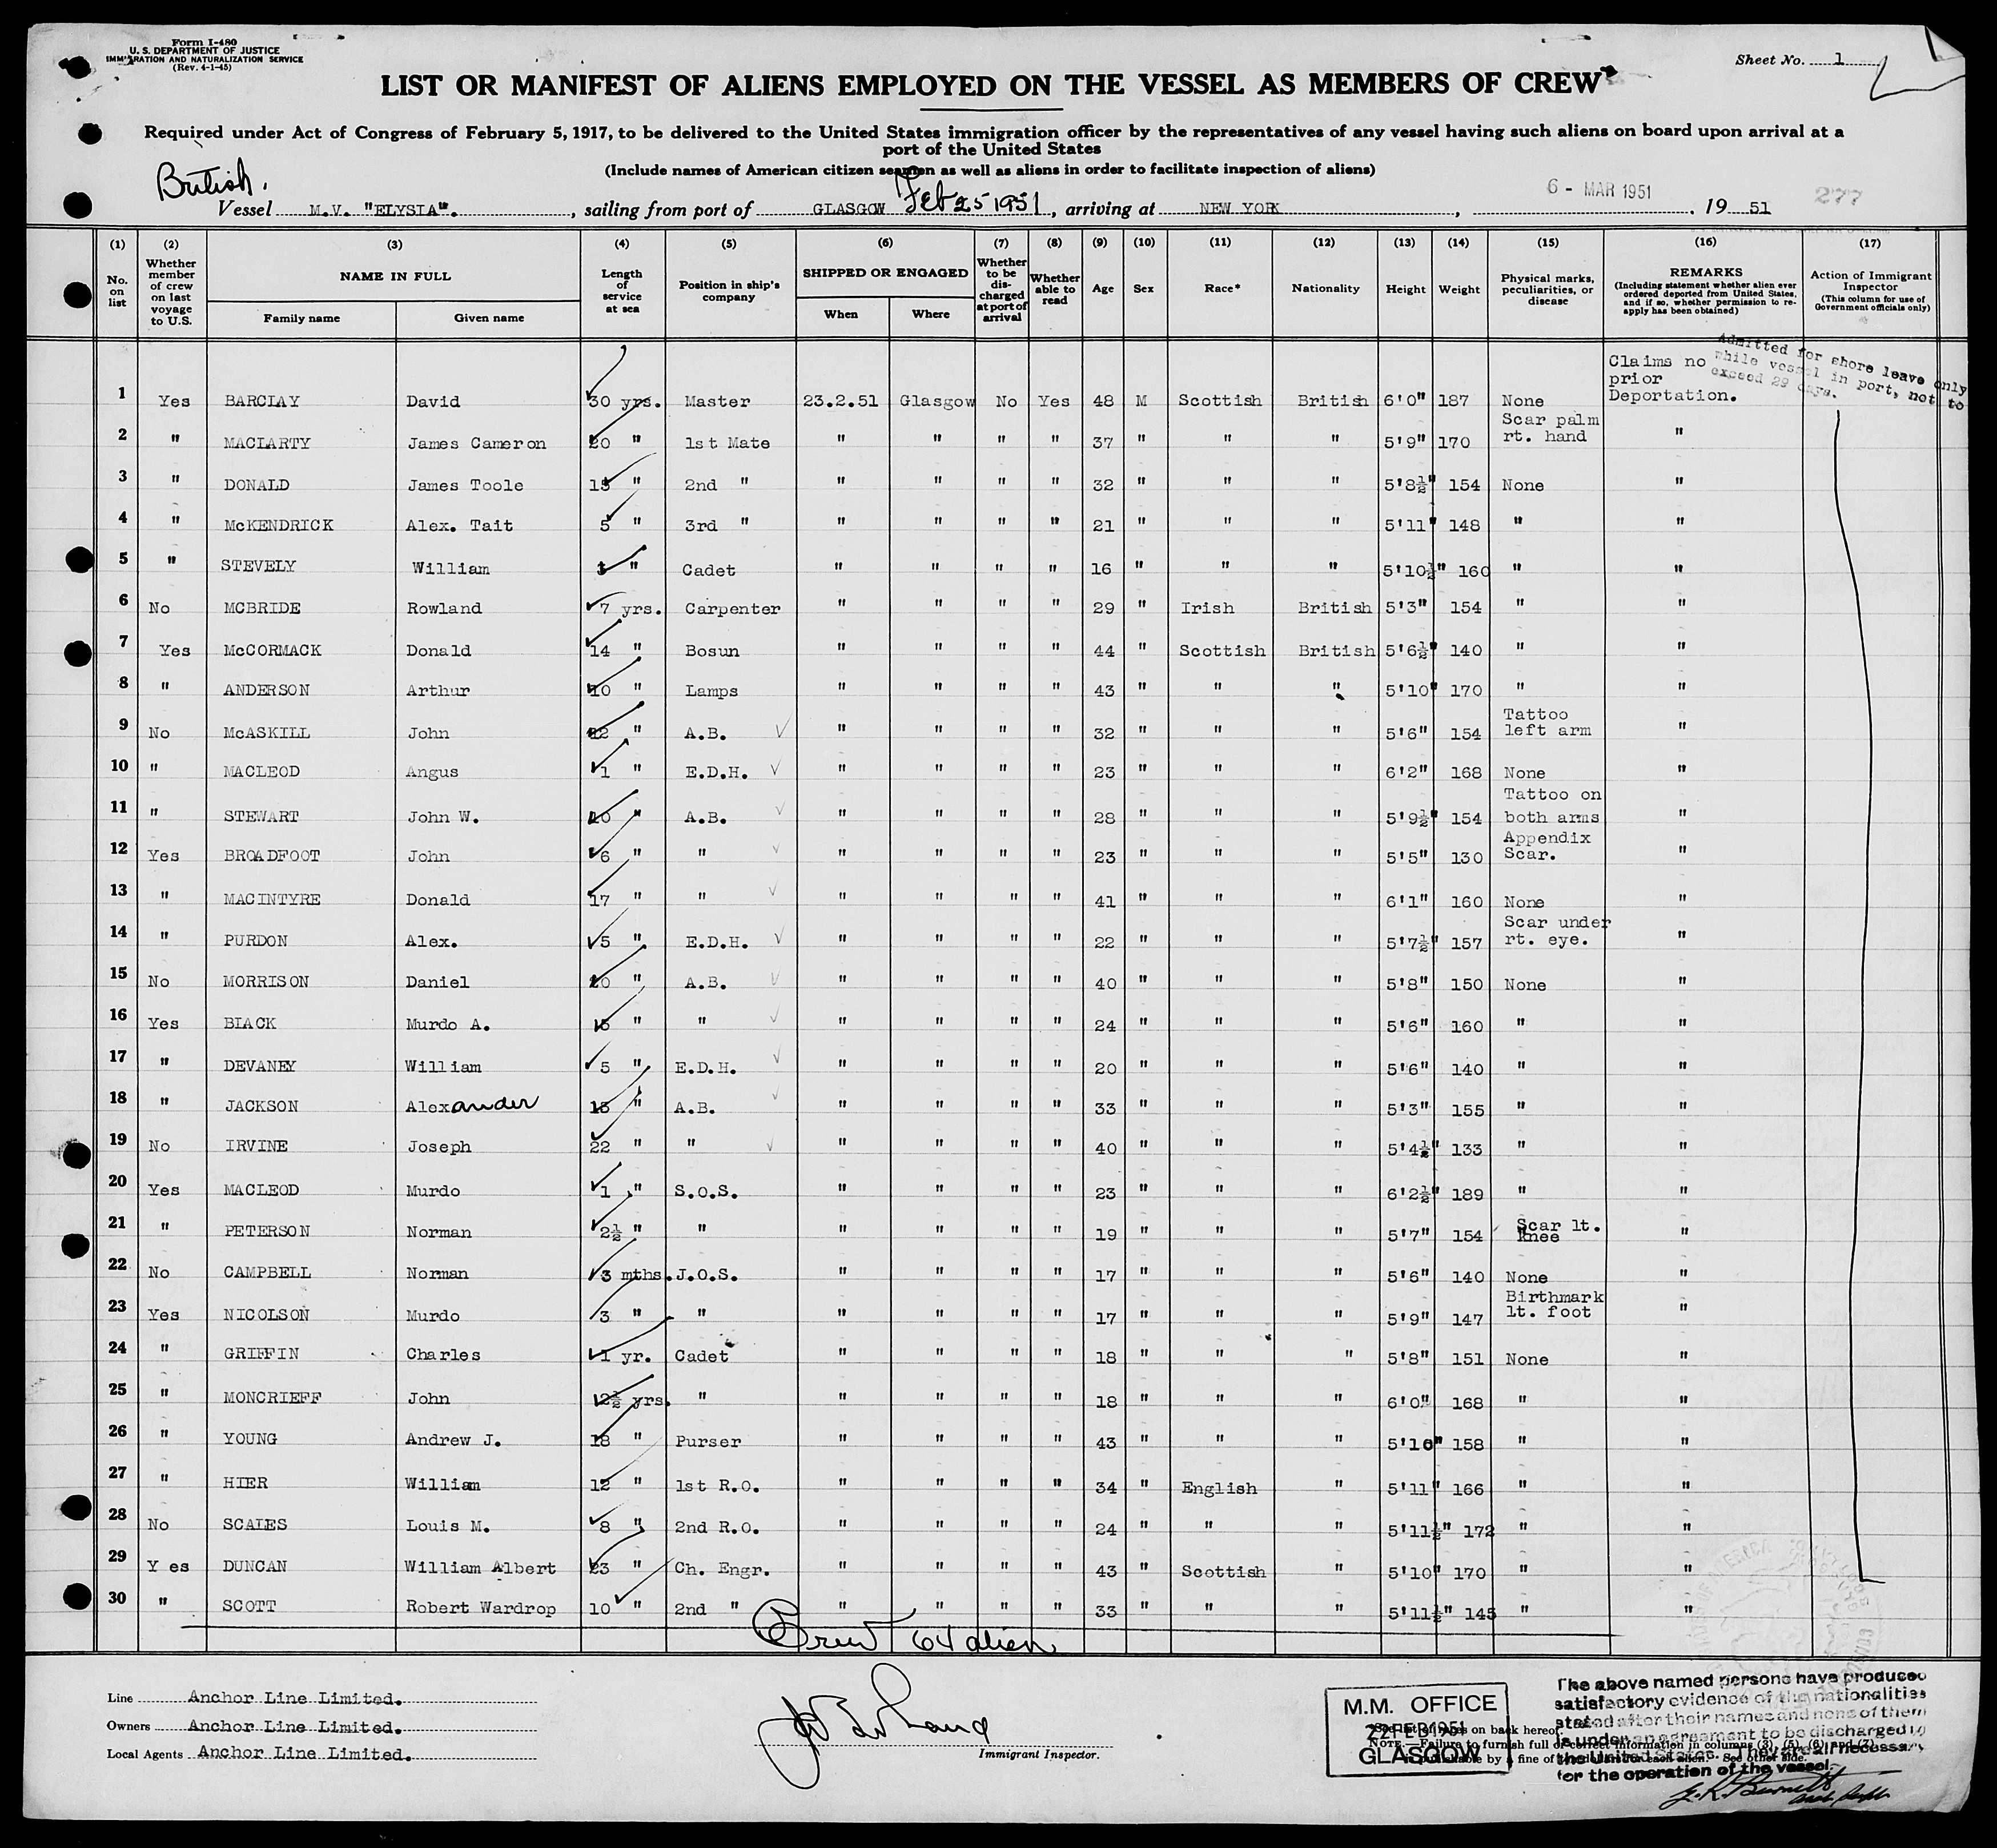 Form I-480
U. S. DEPARTMENT OF JUSTICE
IMMIGRATION AND NATURALIZATION SERVICE
(Rev. 4-1-45)
Sheet No. 1
LIST OR MANIFEST OF ALIENS EMPLOYED ON THE VESSEL AS MEMBERS OF CREW
Required under Act of Congress of February 5, 1917, to be delivered to the United States immigration officer by the representatives of any vessel having such aliens on board upon arrival at a
port of the United States
(Include names of American citizen seamen as well as aliens in order to facilitate inspection of aliens)
British.
6 - MAR 1951
277
Vessel M.V. "ELYSIA". , sailing from port of GLASGOW Feb 25 1951, arriving at NEW YORK , , 19 51
(1) (2) (3) (4) (5) (6) (7) (8) (9) (10) (11) (12) (13) (14) (15) (16) (17)
No. on list
Whether member of crew on last voyage to U.S.
NAME IN FULL
Family name
Given name
Length of service at sea
Position in ship's company
SHIPPED OR ENGAGED
When
Where
Whether to be discharged at port of arrival
Whether able to read
Age
Sex
Race*
Nationality
Height
Weight
Physical marks, peculiarities, or disease
REMARKS
(Including statement whether alien ever ordered deported from United States, and if so, whether permission to reapply has been obtained)
Action of Immigrant Inspector
(This column for use of Government officials only)
Admitted for shore leave only
while vessel in port, not to
exceed 29 days.
1 Yes BARCLAY David 30 yrs. Master 23.2.51 Glasgow No Yes 48 M Scottish British 6'0" 187 None Claims no prior Deportation.
2 " MACLARTY James Cameron 20 " 1st Mate " " " " 37 " " " 5'9" 170 Scar palm rt. hand "
3 " DONALD James Toole 15 " 2nd " " " " " 32 " " " 5'8½" 154 None "
4 " McKENDRICK Alex. Tait 5 " 3rd " " " " " 21 " " " 5'11" 148 " "
5 " STEVELY William " Cadet " " " " 16 " " " 5'10½" 160 " "
6 No MCBRIDE Rowland 7 yrs. Carpenter " " " " 29 " Irish British 5'3" 154 " "
7 Yes McCORMACK Donald 14 " Bosun " " " " 44 " Scottish British 5'6½" 140 " "
8 " ANDERSON Arthur 10 " Lamps " " " " 43 " " " 5'10" 170 " "
9 No McASKILL John " A.B. " " " " 32 " " " 5'6" 154 Tattoo left arm "
10 " MACLEOD Angus 1 " E.D.H. " " " " 23 " " " 6'2" 168 None "
11 " STEWART John W. 10 " A.B. " " " " 28 " " " 5'9½" 154 Tattoo on both arms "
12 Yes BROADFOOT John 6 " " " " " " 23 " " " 5'5" 130 Appendix Scar. "
13 " MACINTYRE Donald 17 " " " " " " 41 " " " 6'1" 160 None "
14 " PURDON Alex. 5 " E.D.H. " " " " 22 " " " 5'7½" 157 Scar under rt. eye. "
15 No MORRISON Daniel 20 " A.B. " " " " 40 " " " 5'8" 150 None "
16 Yes BLACK Murdo A. 15 " " " " " " 24 " " " 5'6" 160 " "
17 " DEVANEY William 5 " E.D.H. " " " " 20 " " " 5'6" 140 " "
18 " JACKSON Alexander 15 " A.B. " " " " 33 " " " 5'3" 155 " "
19 No IRVINE Joseph 22 " " " " " " 40 " " " 5'4½" 133 " "
20 Yes MACLEOD Murdo 1 " S.O.S. " " " " 23 " " " 6'2½" 189 " "
21 " PETERSON Norman 2½ " " " " " " 19 " " " 5'7" 154 Scar lt. Knee "
22 No CAMPBELL Norman 3 mths. J.O.S. " " " " 17 " " " 5'6" 140 None "
23 Yes NICOLSON Murdo 3 " " " " " " 17 " " " 5'9" 147 Birthmark lt. foot "
24 " GRIFFIN Charles 1 yr. Cadet " " " " 18 " " " 5'8" 151 None "
25 " MONCRIEFF John 2½ yrs. " " " " " 18 " " " 6'0" 168 " "
26 " YOUNG Andrew J. 18 " Purser " " " " 43 " " " 5'10" 158 " "
27 " HIER William 12 " 1st R.O. " " " " 34 " English " 5'11" 166 " "
28 No SCALES Louis M. 8 " 2nd R.O. " " " " 24 " " " 5'11½" 172 " "
29 Y es DUNCAN William Albert 23 " Ch. Engr. " " " " 43 " Scottish " 5'10" 170 " "
30 " SCOTT Robert Wardrop 10 " 2nd " " " " " 33 " " " 5'11½" 145 " "
Crew 64 alien
Line Anchor Line Limited.
Owners Anchor Line Limited.
Local Agents Anchor Line Limited.
Immigrant Inspector.
M.M. OFFICE
FEB 1951
GLASGOW
See list of races on back hereof.
NOTE.—Failure to furnish full or correct information in columns (3), (5), (6) and (7)
is punishable by a fine of See other side.
The above named persons have produced
satisfactory evidence of the nationalities
stated after their names and none of them
is under an agreement to be discharged in
the United States. They are all necessary
for the operation of the vessel.